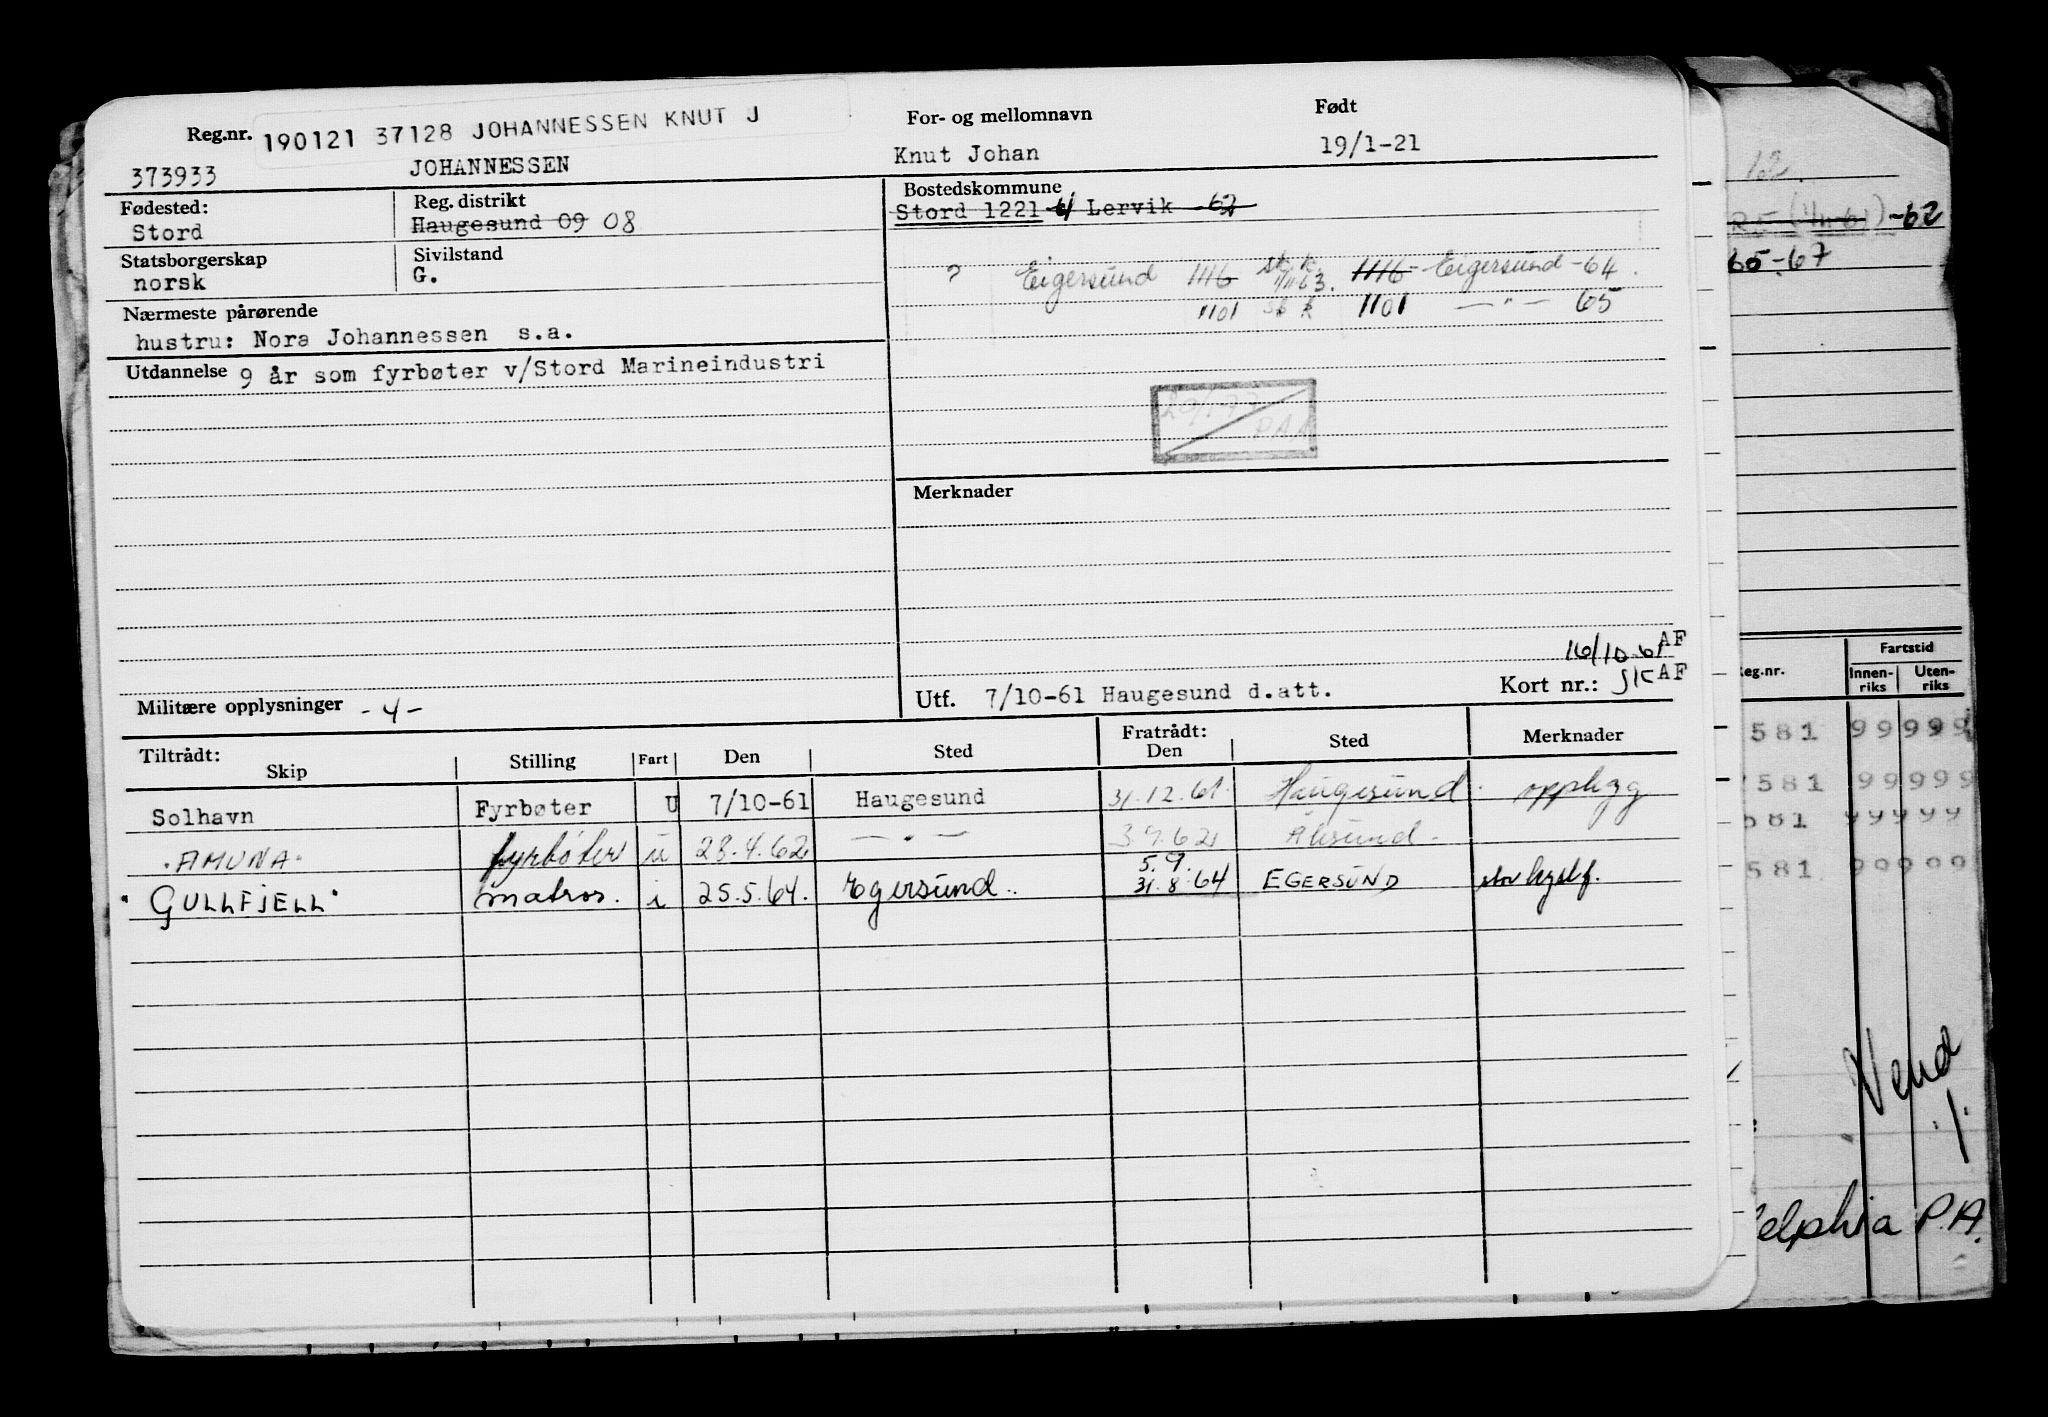 190121 37128 JOHANNESSEN KNUT J
Reg.nr. For- og mellomnavn Født
373933 JOHANNESSEN Knut Johan 19/1-21
Fødested: Reg. distrikt Bostedskommune
Stord Haugesund 09 08 Stord 1221 Lervik -62
Statsborgerskap Sivilstand
norsk G.
? Eigersund 1116 1116 Eigersund -64
1101 1101 — " — 65
Nærmeste pårørende
hustru: Nora Johannessen s.a.
Utdannelse 9 år som fyrbøter v/Stord Marineindustri
PAA
Merknader
16/10 61 AF
Militære opplysninger -4- Utf. 7/10-61 Haugesund d.att. Kort nr.: AF
Tiltrådt: Fratrådt:
Skip Stilling Fart Den Sted Den Sted Merknader
Solhavn Fyrbøter U 7/10-61 Haugesund 31.12.61. Haugesund opplegg
"AMUNA" fyrbøter u 28.4.62 — " — 3.9.62 Ålesund
5.9.
"GULLFJELL" matros. i 25.5.64. Egersund.. 31.8.64 EGERSUND
12.
-62
65-67
Fartstid
eg.nr. Innen-riks Uten-riks
581 99 999
581 99 999
581 99 999
581 99 999
Vend
elphia P.A.